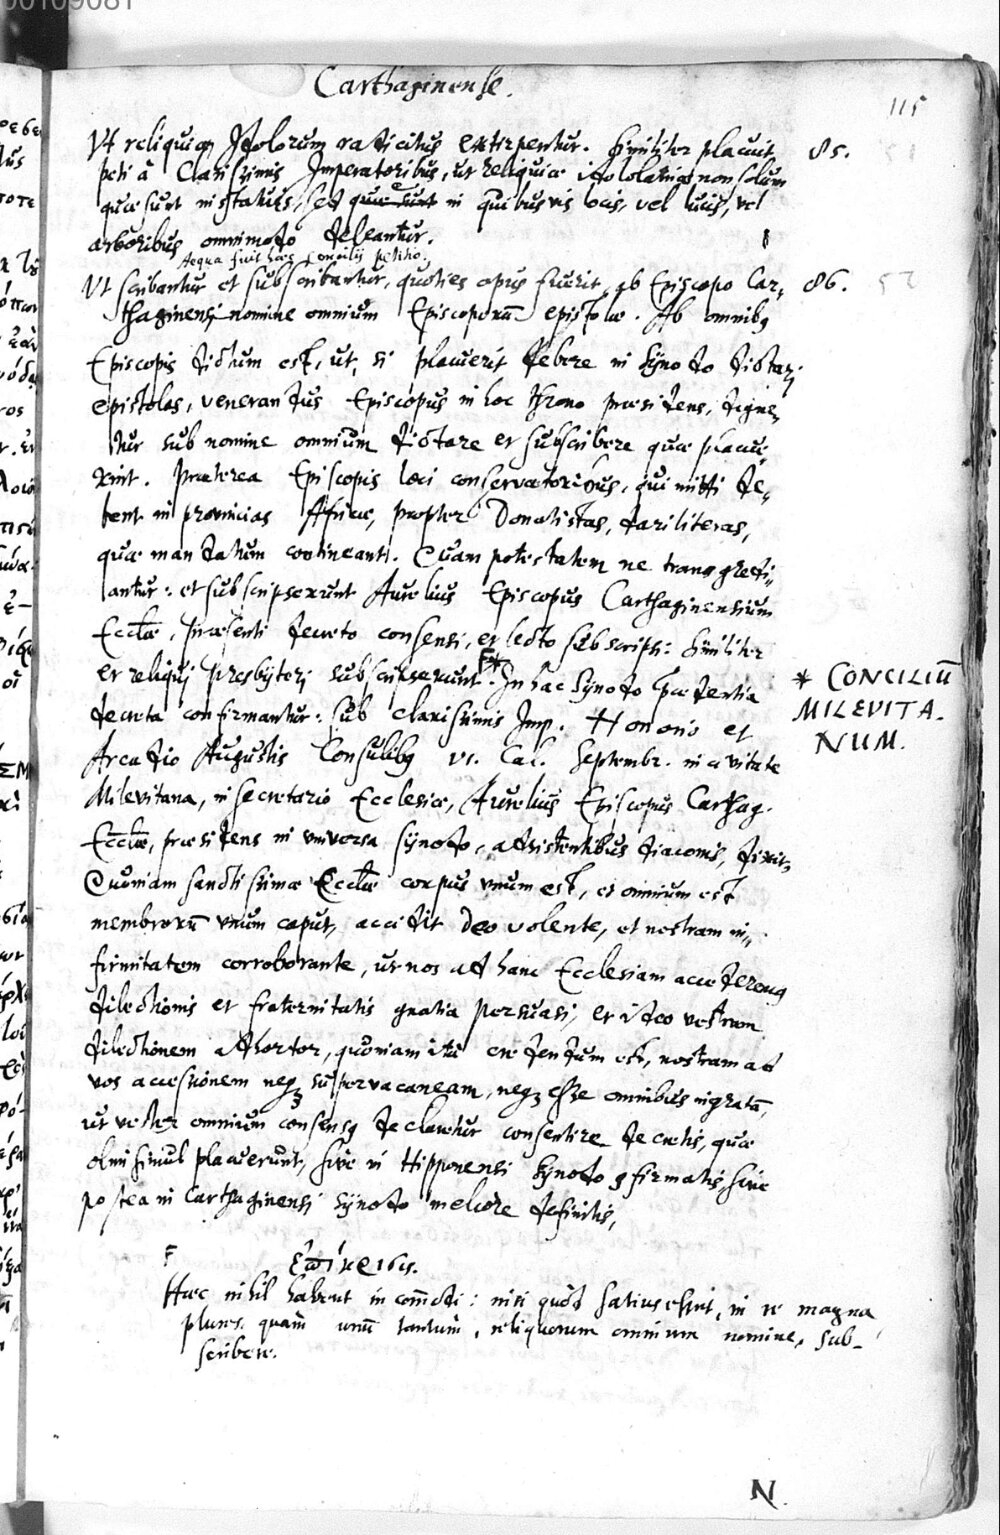 00109081
Carthaginense.
115
Vt reliquiæ Idolorum radicitus extirpentur. Similiter placuit 85.
peti à Clarissimis Imperatoribus, ut reliquiæ idololatriæ non solum
quæ sunt in statuis, sed quæ sunt in quibusvis locis, vel lucis, vel
arboribus omnimodo deleantur.
Aequa fuit hæc Concilij petitio.
Vt scribantur et subscribantur, quoties opus fuerit, ab Episcopo Car- 86.
thaginensi nomine omnium Episcoporū epistolæ. Ab omnibq
Episcopis dictum est, ut, si placuerit debere in Synodo dictari
epistolas, venerandus Episcopus in hoc throno præsidens, digne-
tur sub nomine omnium dictare et subscribere quæ placue-
rint. Præterea Episcopis loci conservatoribus, qui mitti de-
bent in provincias Affricæ, propter Donatistas, dari literas,
quæ mandatum contineant. Quam potestatem ne transgredi-
antur: et subscripserunt Aurelius Episcopus Carthaginensium
Eccl̄æ, præsenti decreto consensi, et lecto subscripsi: similiter
et reliquj presbyterj subscripserunt. F* In hac Synodo præterita
decreta confirmantur: sub clarissimis Imp. Honorio et
Arcadio Augustis Consulibq VI. Cal. Septembr. in civitate
Milevitana, in secretario Ecclesiæ, Aurelius Episcopus Carthag.
Eccl̄æ, præsidens in universa synodo, adsistentibus diaconis, dixit,
* CONCILIŪ
MILEVITA-
NUM.
Quoniam sanctissimæ Eccl̄æ corpus unum est, et omnium est
membrorū unum caput, accidit Deo volente, et nostram in-
firmitatem corroborante, ut nos ad hanc Ecclesiam accederemq
dilectionis et fraternitatis gratia persuasi, et ideo vestram
dilectionem adhortor, quoniam ita credendum est, nostram ad
vos accessionem neqꝫ supervacaneam, neqꝫ esse omnibus ingratā,
ut vester omnium consensq declaretur consentire decretis, quæ
olim simul placuerunt, sive in Hipponensi Synodo ꝯfirmatis sive
postea in Carthaginensi Synodo meliore definitis,
F ἐπίκρισις.
Hæc nihil habent incōmodi: nisi quòd satius esset, in re magna
plures quàm unū tantùm, reliquorum omnium nomine, sub-
scribere.
N.